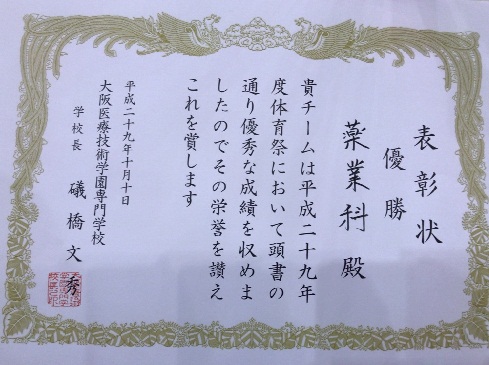 表彰状
優勝
薬業科殿
貴チームは平成二十九年
度体育祭において頭書の
通り優秀な成績を収めま
したのでその栄誉を讃え
これを賞します
平成二十九年十月十日
大阪医療技術学園専門学校
学校長 礒橋文秀